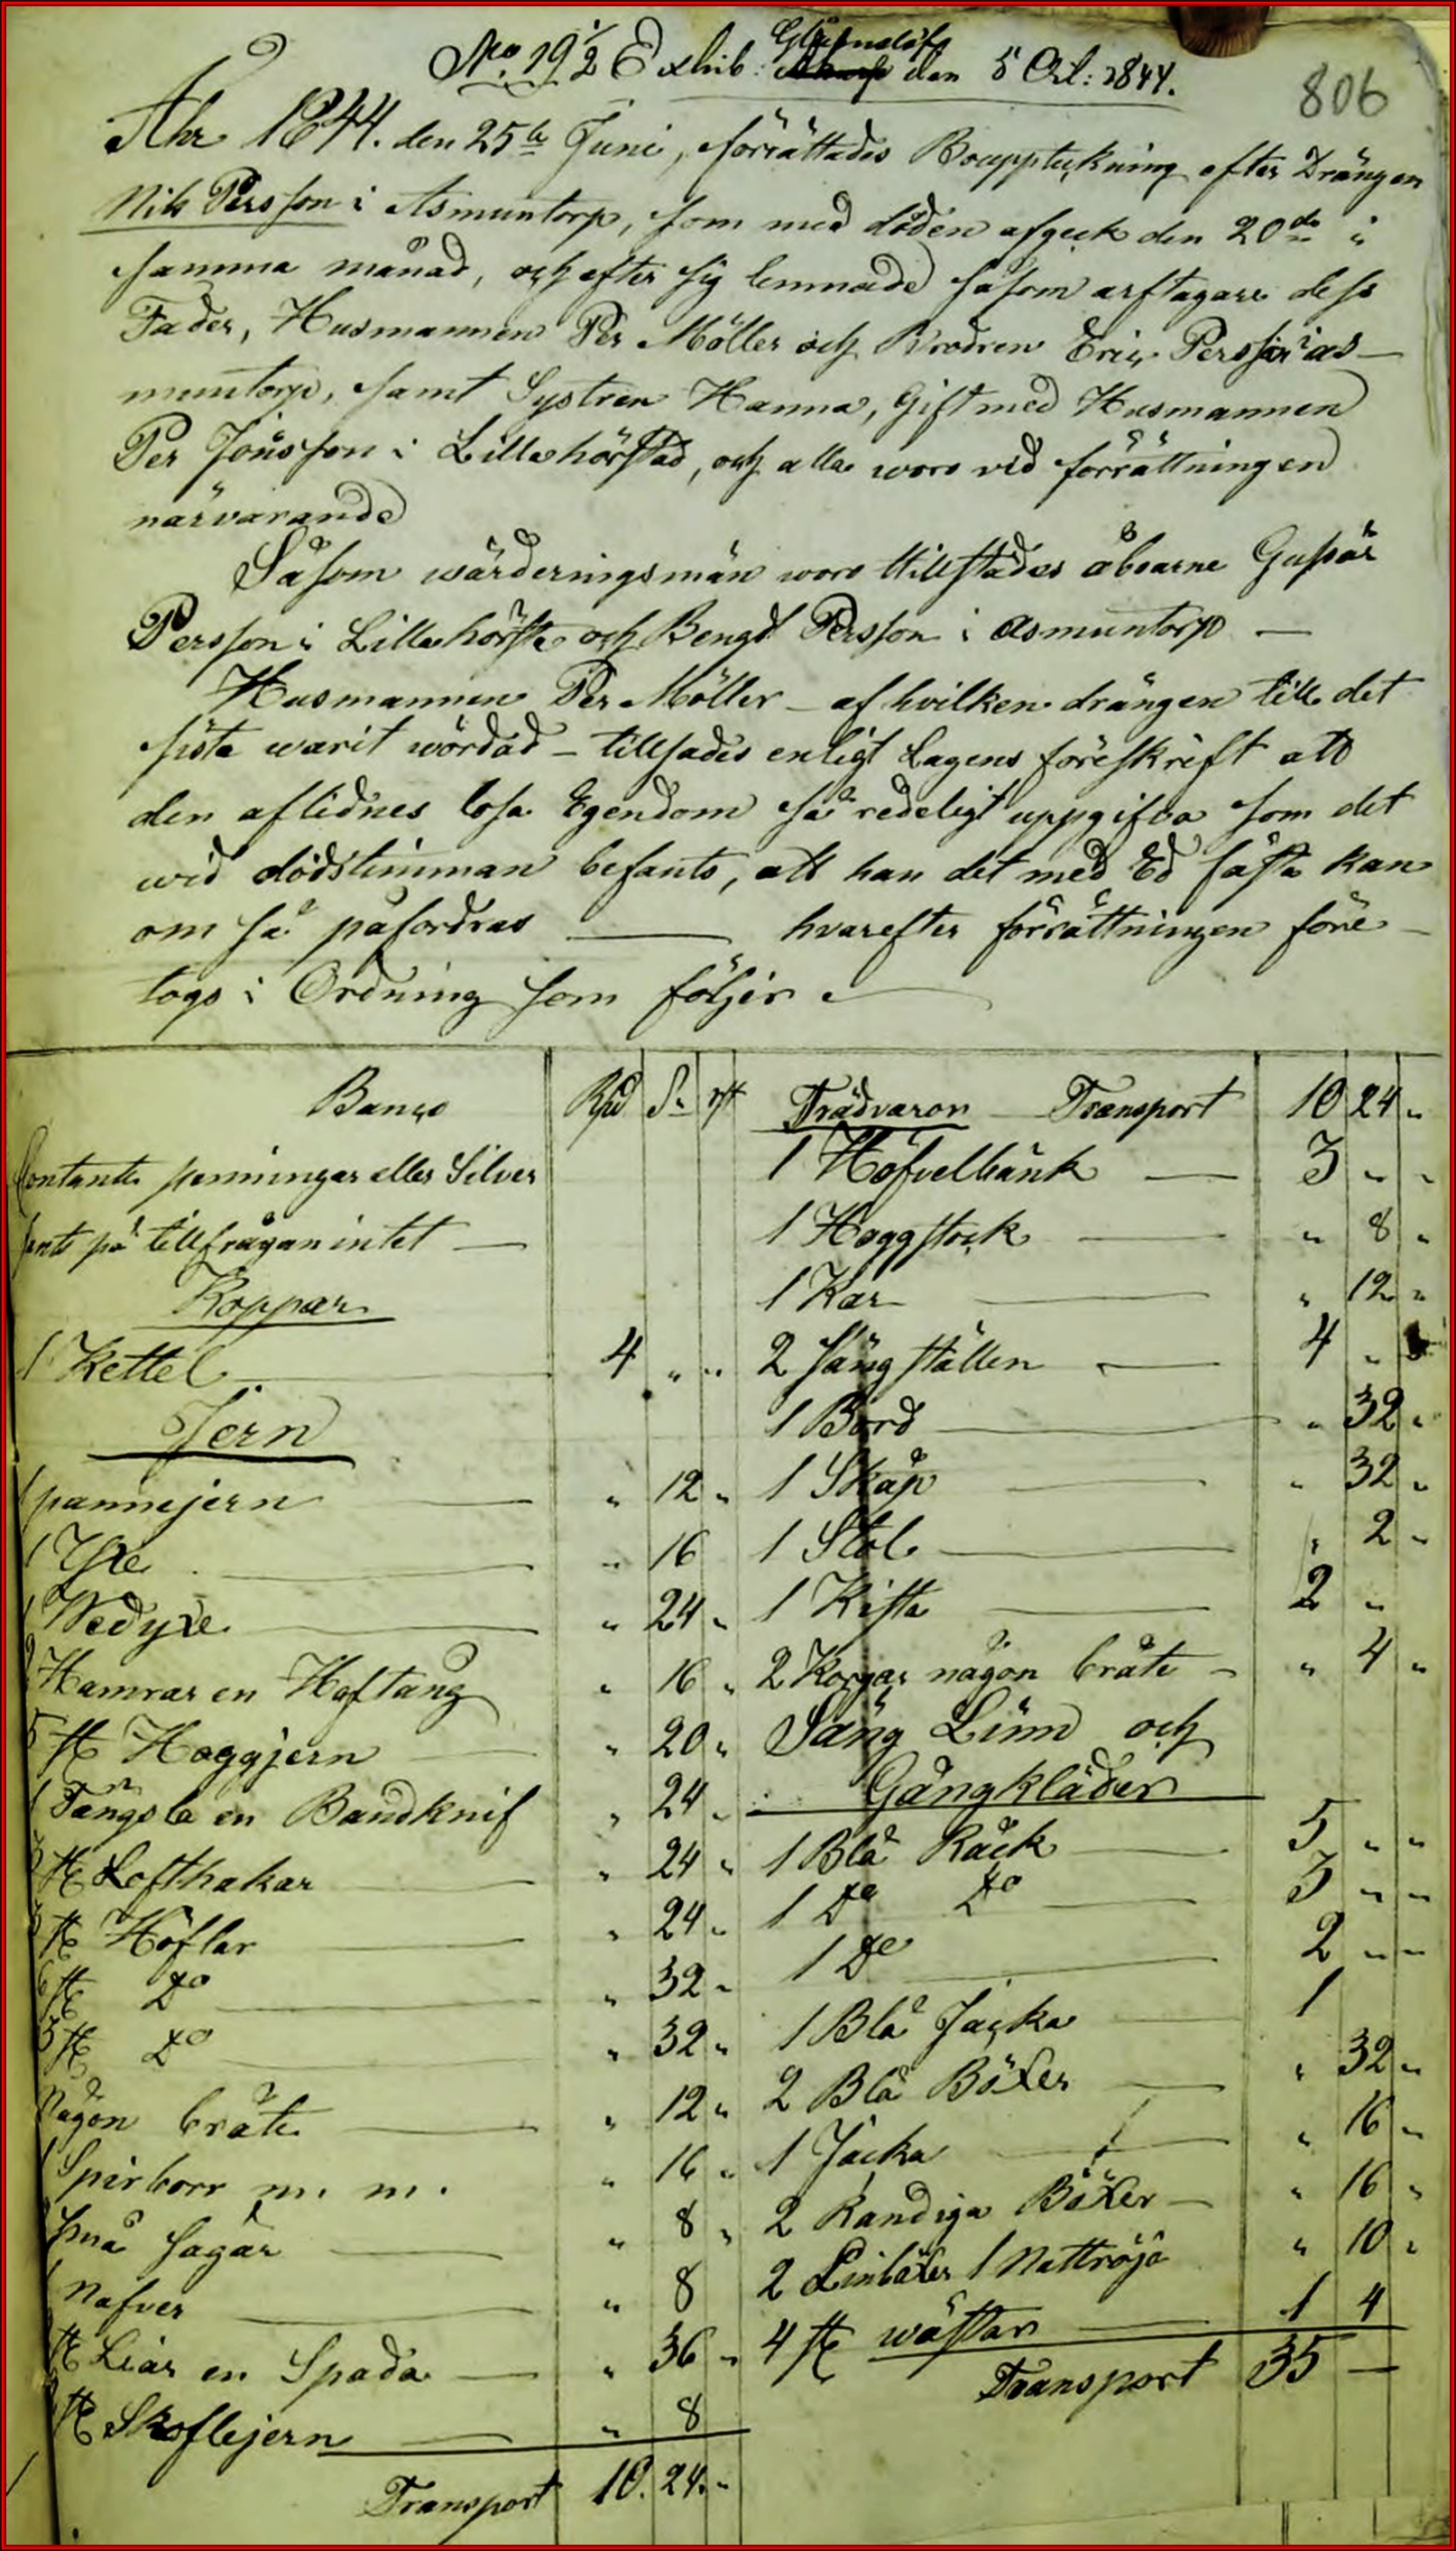 No. 19 1/2 Exhib: den 5 Oct: 1844.
806
Åhr 1844. den 25te Juni, förrättades Bouppteckning efter Drängen
Nils Persson i Asmuntorp, som med döden afgeck den 20de i
samma månad, och efter sig lemnade såsom arftagare dess
Fader, Husmannen Per Möller och Brodren Eric Persson i as-
muntorp, samt Systren Hanna, Gift med Husmannen
Per Jönsson i Lillahörstad, och alla woro vid förrättningen
närvarande
Såsom wärderingsmän woro tillstädes åboarne
Persson i Lillahörsta och Bengt Persson i Asmuntorp —
Husmannen Per Möller – af hvilken drängen till det
sista warit wårdad – tillsades enligt Lagens föreskrift att
den aflidnes lösa Egendom så redeligt uppgifva som det
wid dödstimman befants, att han det med Ed fästa kan
om så påfordras — hvarefter förrättningen före-
togs i Ordning som följer
Banco Rd S. rst
Contante penningar eller Silver
fants på tillfrågan intet —
Koppar
1 Kettel — 4 „ „
Jern
1 pannejern — „ 12 „
1 Yxe — „ 16
1 Wedyxe — „ 24 „
2 Hamrar en Hoftång „ 16 „
5 st Hoggjern — „ 20 „
1 en Bandknif „ 24 „
st Lofthakar — „ 24 „
st Höflar — „ 24 „
6 st Do — „ 32 „
5 st Do — „ 32 „
Någon bråte — „ 12 „
1 Spirborr m. m. „ 16 „
små sagar — „ 8 „
1 Nafver — „ 8
st Liar en Spada — „ 36 „
st Skoflejern — „ 8
Transport 10. 24. „
Trädvaror — Transport 10 24 „
1 Höfvelbänk — 3 „ „
1 Hoggstock — „ 8 „
1 Kar — „ 12 „
2 Sängställen — 4 „
1 Bord — „ 32 „
1 Skåp — „ 32 „
1 Stol — „ 2 „
1 Kista — 2 „
2 Korgar någon bråte — „ 4 „
Säng Linn och
Gångkläder
1 Blå Råck — 5 „ „
1 Do Do — 3 „ „
1 Do — 2 „ „
1 Blå Jacka — 1
2 Blå Böxer — „ 32 „
1 Jacka — „ 16 „
2 Randiga Böxer — „ 16 „
2 Linböxer 1 Nattröja „ 10 „
4 st wästar — 1 4
Transport 35 —